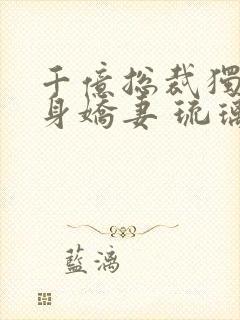 千億總裁獨
身嬌妻 琉璃
藍漓